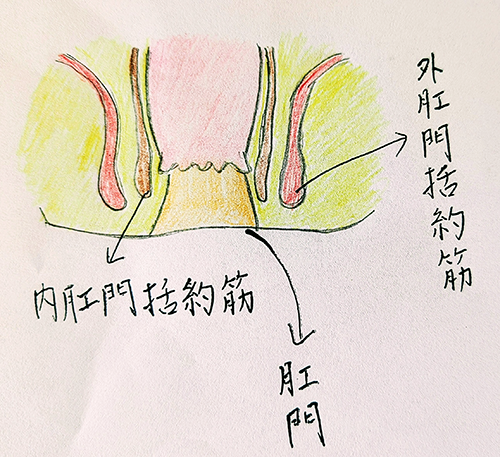 外肛門括約筋
内肛門括約筋
肛門